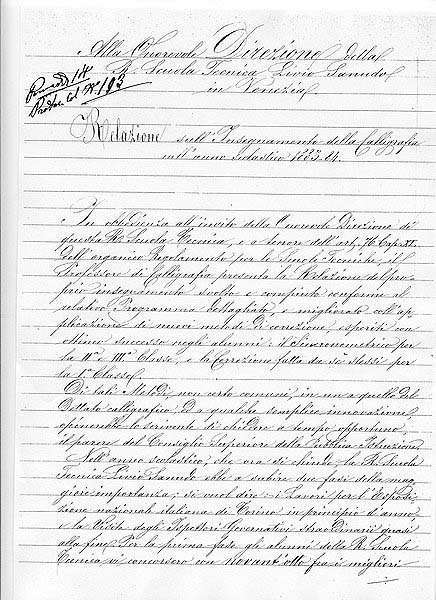 Alla Onorevole Direzione della
R. Scuola Tecnica Livio Sanudo
in Venezia
Prot. col N° 193
Relazione sull'Insegnamento della Calligrafia
nell'anno scolastico 1883-84.
In obbedienza all'invito della Onorevole Direzione di
questa R. Scuola Tecnica, e a tenor dell'art. 76 Cap. XI.
dell'organico Regolamento per le Scuole Tecniche, il
Professore di Calligrafia presenta la Relazione del pro-
prio insegnamento svolto e compiuto conforme al
relativo Programma dettagliato, e migliorato coll'ap-
plicazione di nuovi metodi di correzione, esperiti con
ottimo successo negli alunni: il Sincronometrico per
la IIa e IIIa Classe, e la Correzione fatta da sè stessi per
la Ia Classe.
Di tali Metodi, non certo comuni, in un a quello del
Dettato calligrafico ed a qualche semplice innovazione,
opinerebbe lo scrivente di chiedere a tempo opportuno
il parere del Consiglio Superiore della Pubblica Istruzione.
Nell'anno scolastico, che ora si chiude, la R. Scuola
Tecnica Livio Sanudo ebbe a subire due fasi della mag-
giore importanza; si vuol dire: i Lavori per l'Esposi-
zione nazionale italiana di Torino in principio d'anno
e la Visita degli Ispettori Governativi straordinarii quasi
alla fine. Per la prima fase gli alunni della R. Scuola
Tecnica vi concorsero con novant'otto fra i migliori